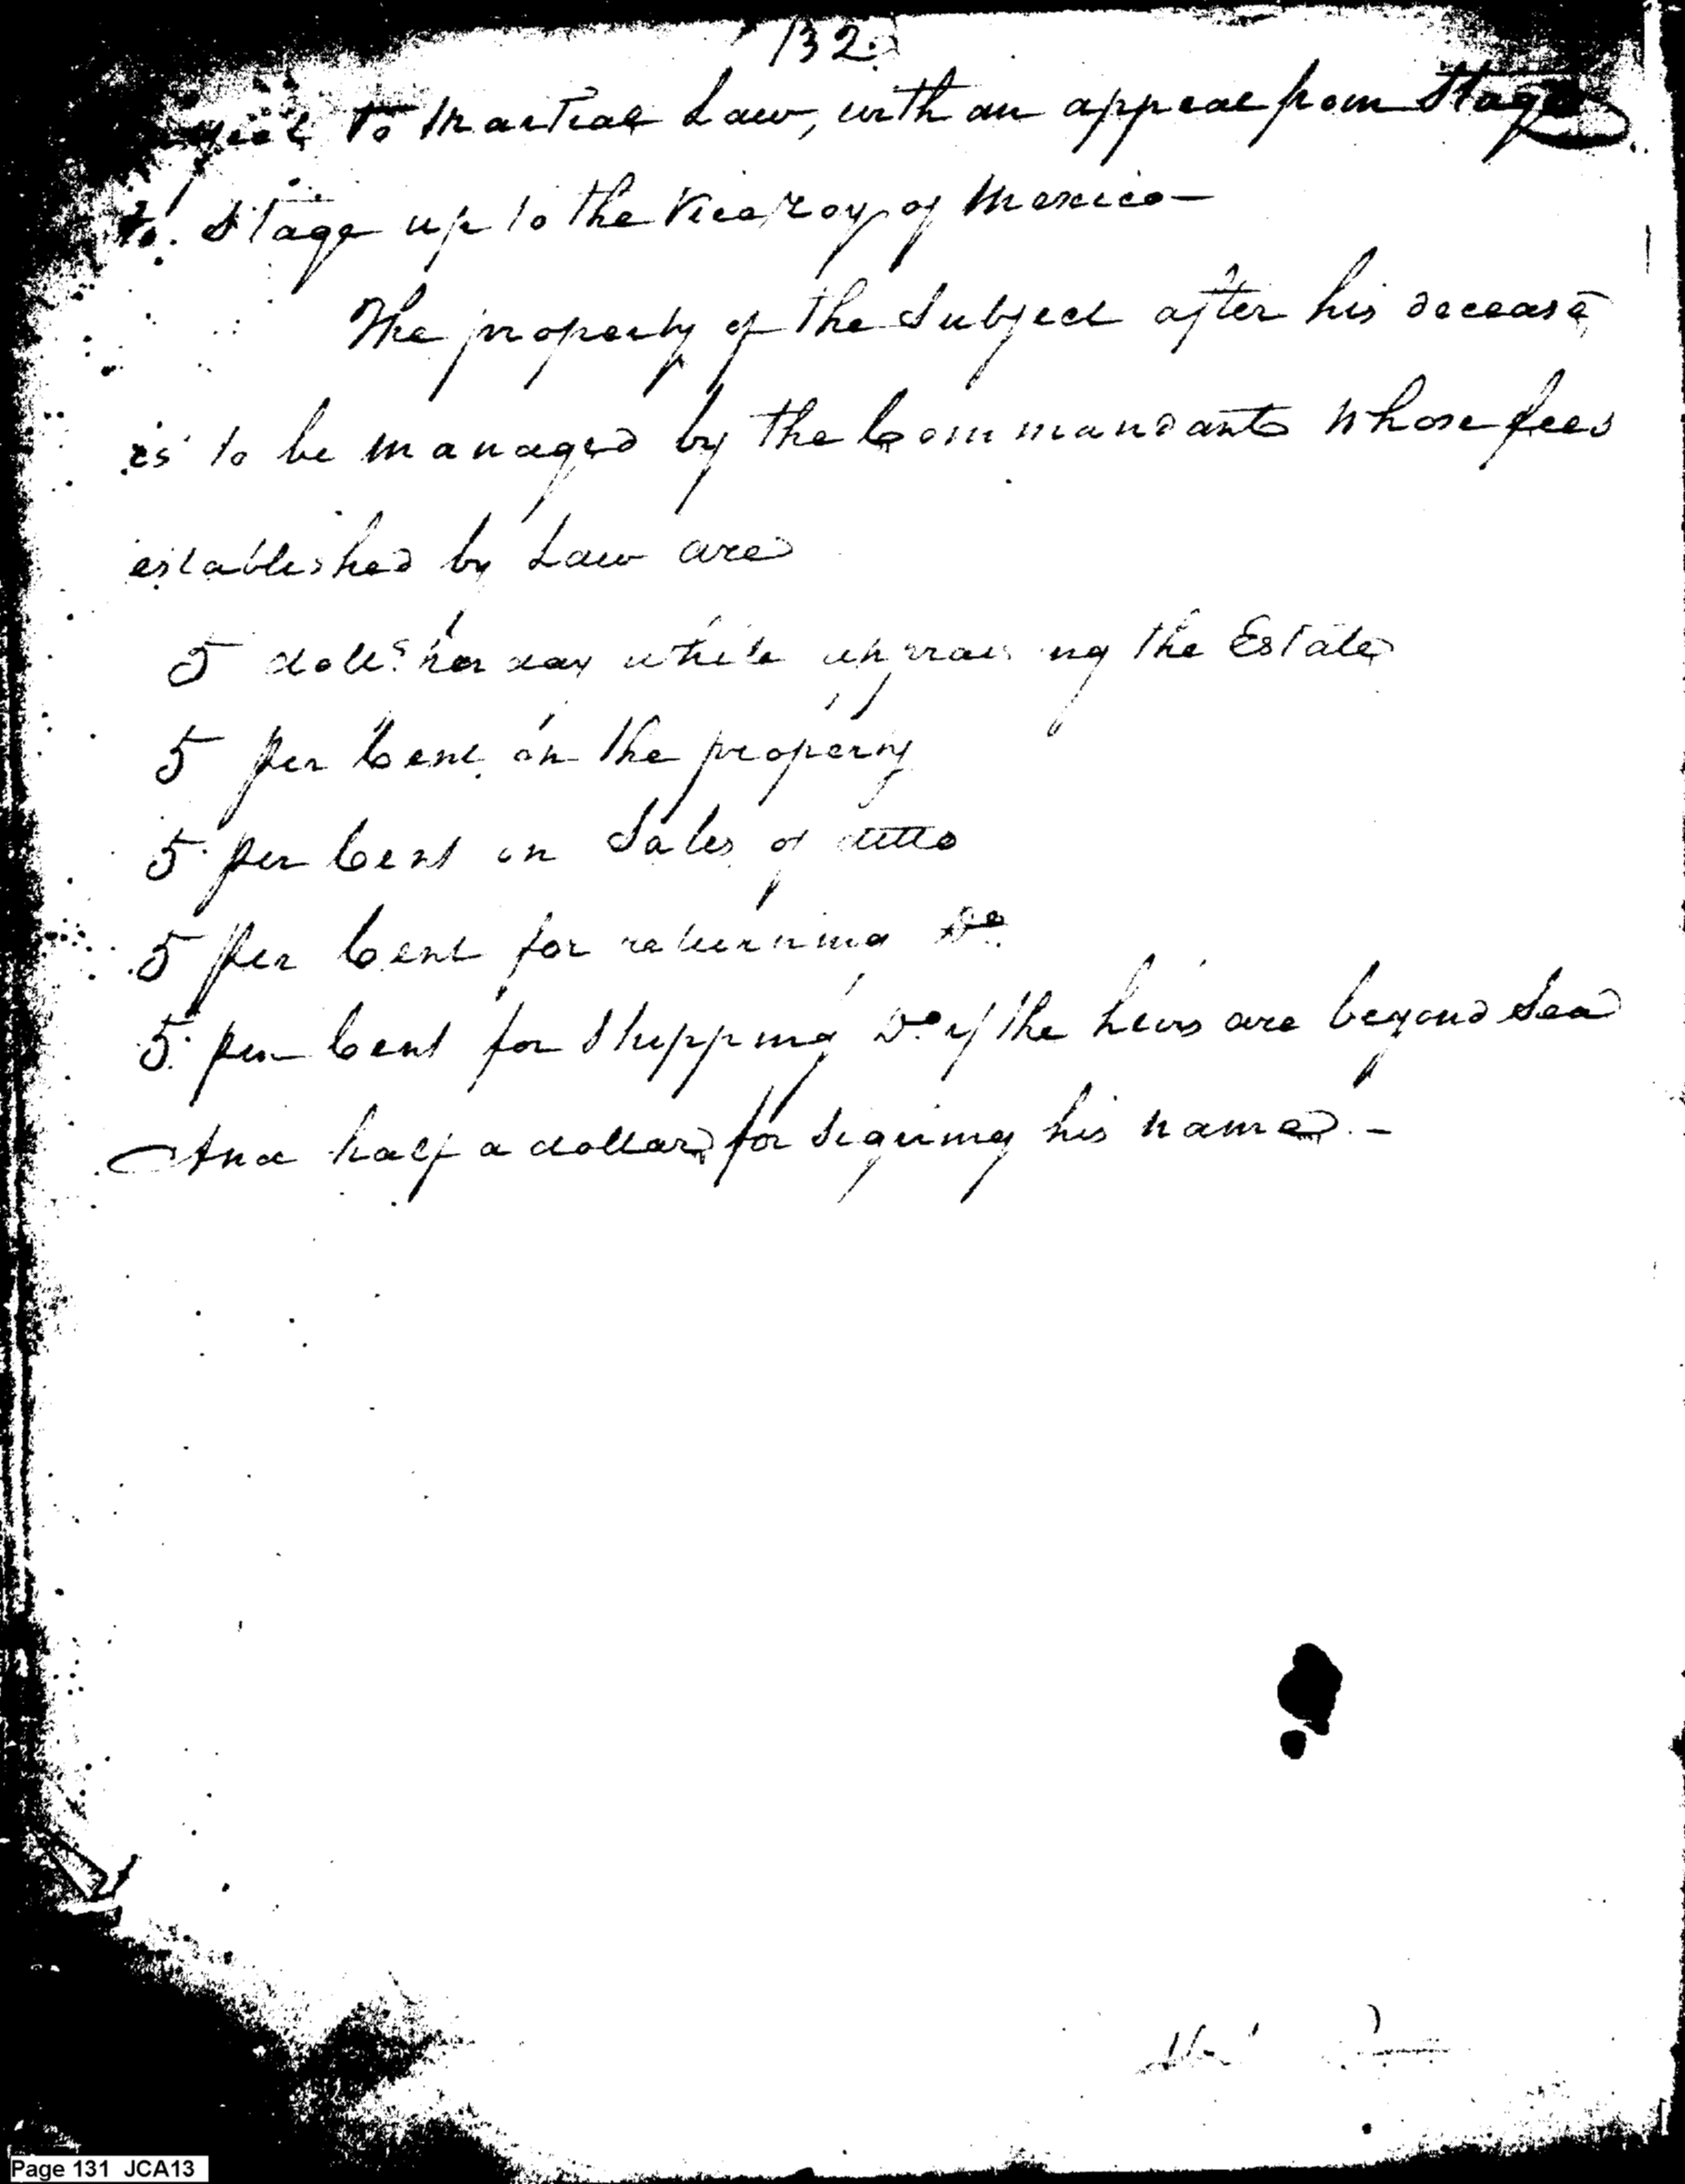 132.
to Martial Law, with an appeal from Stage
to Stage up to the Viceroy of Mexico—
The property of the Subject after his decease
is to be managed by the Commandants whose fees
established by Law are
5 dolls per day while appraising the Estate
5 per Cent on the property
5 per Cent on Sales of ditto
5 per Cent for returning Do
5 per Cent for Shipping Do if the heirs are beyond Sea
And half a dollar for signing his name.—
Page 131 JCA13